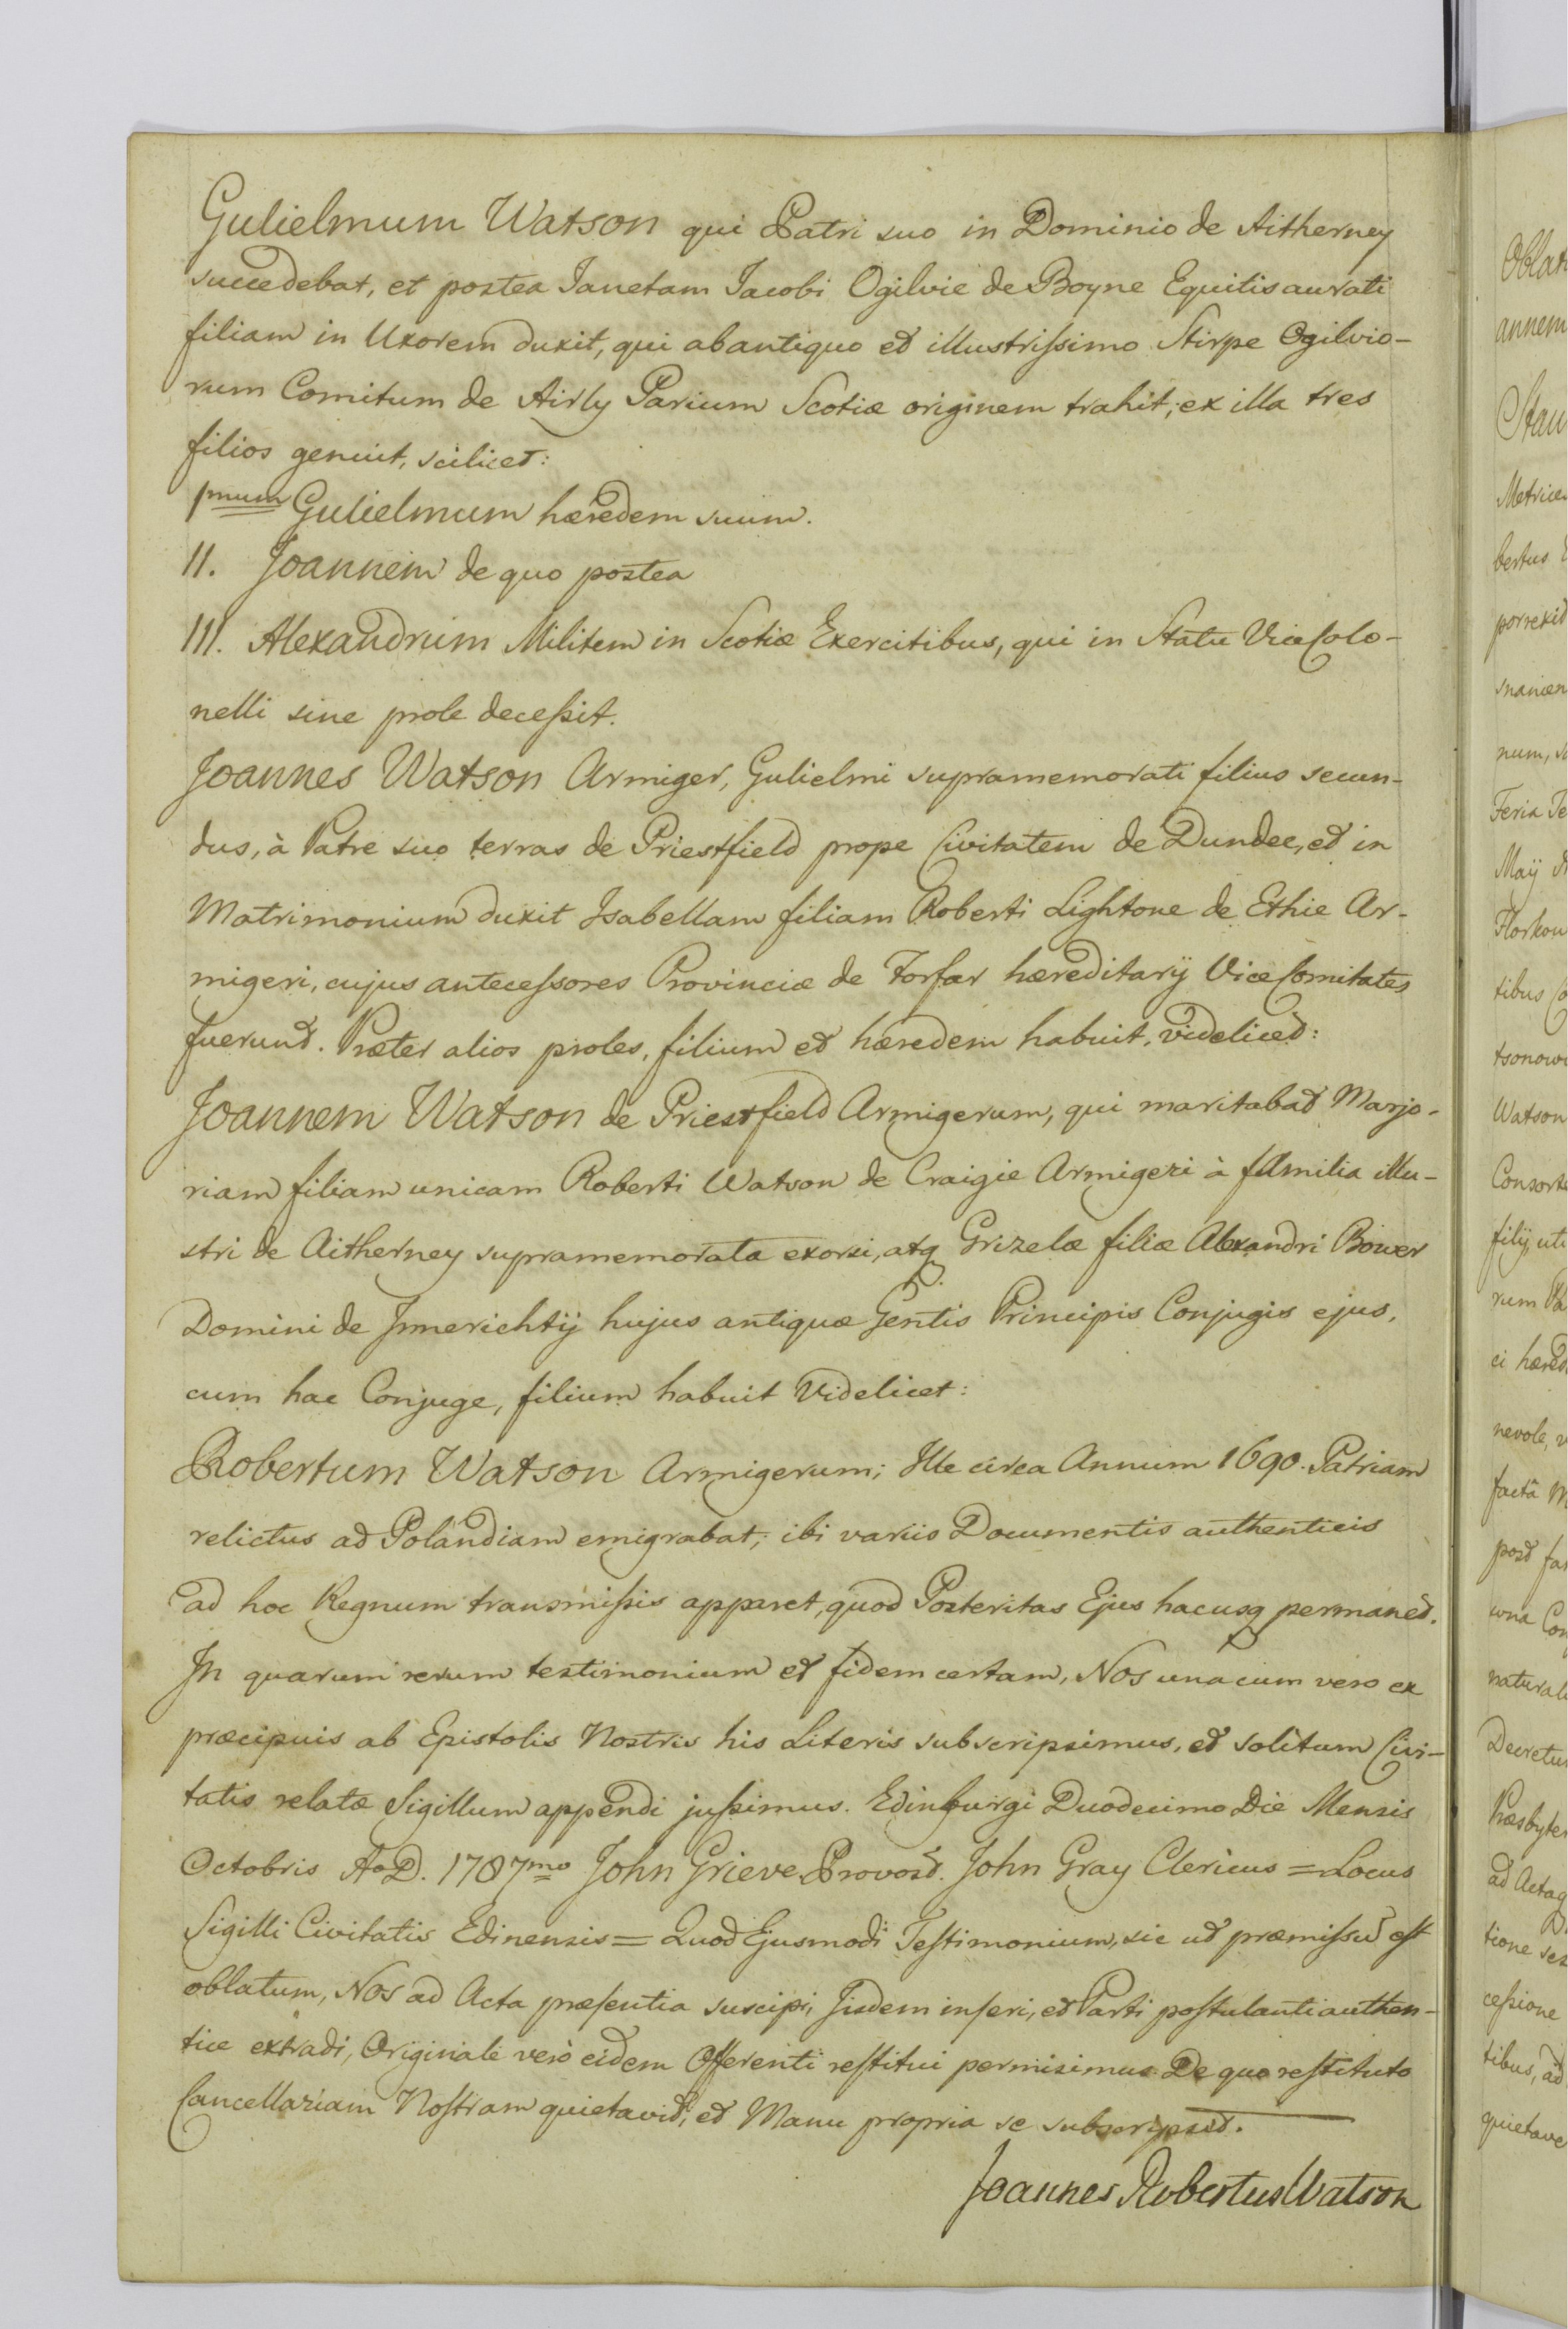 Gulielmum Watson qui Patri suo in Dominio de Aitherney
succedebat, et postea Janetam Jacobi Ogilvie de Boyne Equitis aurati
filiam in Uxorem duxit, qui ab antiquo et illustrissimo Stirpe Ogilvio-
rum Comitum de Airly Parium Scotiæ originem trahit; ex illa tres
filios genuit, scilicet:
1mum Gulielmum hæredem suum.
II. Joannem de quo postea
III. Alexandrum Militem in Scotiæ Exercitibus, qui in Statu Vice Colo-
nelli sine prole decessit.
Joannes Watson Armiger, Gulielmi supramemorati filius secun-
dus, à Patre suo terras de Priestfield prope Civitatem de Dundee, et in
Matrimonium duxit Isabellam filiam Roberti Lightone de Ethie Ar-
migeri, cujus antecessores Provinciæ de Forfar hæreditarij Vice Comitates
fuerunt. Præter alios proles, filium et hæredem habuit, videlicet:
Joannem Watson de Priestfield Armigerum, qui maritabat Marjo-
riam filiam unicam Roberti Watson de Craigie Armigeri à familia illu-
stri de Aitherney supramemorata exorsi, atq Grizelæ filiæ Alexandri Bower
Domini de Innerichtij hujus antiquæ Gentis Principis Conjugis ejus,
cum hac Conjuge, filium habuit Videlicet:
Robertum Watson Armigerum; Ille circa Annum 1690. Patriam
relictus ad Polandiam emigrabat; ibi variis Documentis authenticis
ad hoc Regnum transmissis apparet, quod Posteritas Ejus hacusq permanet.
In quarum rerum testimonium et fidem certam, Nos una cum vero ex
præcipuis ab Epistolis Nostris his Literis subscripsimus, et solitum Civi-
tatis relatæ Sigillum appendi jussimus. Edinburgi Duodecimo Die Mensis
Octobris A. D. 1787mo John Grieve Provost. John Gray Clericus = Locus
Sigilli Civitatis Edinensis = Quod Ejusmodi Testimonium, sic ut præmissū est
oblatum, Nos ad Acta præsentia suscipi, Jisdem inseri, et Parti postulanti authen-
tice extradi, Originale verò eidem Offerenti restitui permisimus. De quo restituto
Cancellariam Nostram quietavit, et Manu propria se subscripsit.
Joannes Robertus Watson
annem
Metrice
bertus
porrexid
num,
Feria
Maij
tibus
tsonow
Watson
Consort
filij, uti
rum
ci
nevole,
factâ
post
Decretu
Præsbyter
ad Actaq
tione
cessione
tibus, ad
quietave